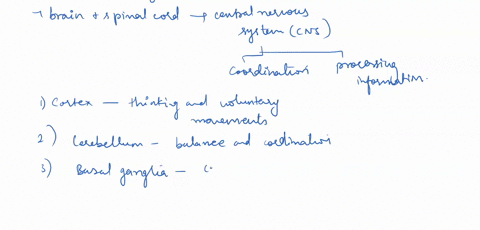 → brain + spinal cord → central nervous
system (CNS)
coordination
processing
information.
1) Cortex — thinking and voluntary
movements
2) Cerebellum - balance and cordination
3) Basal ganglia - c